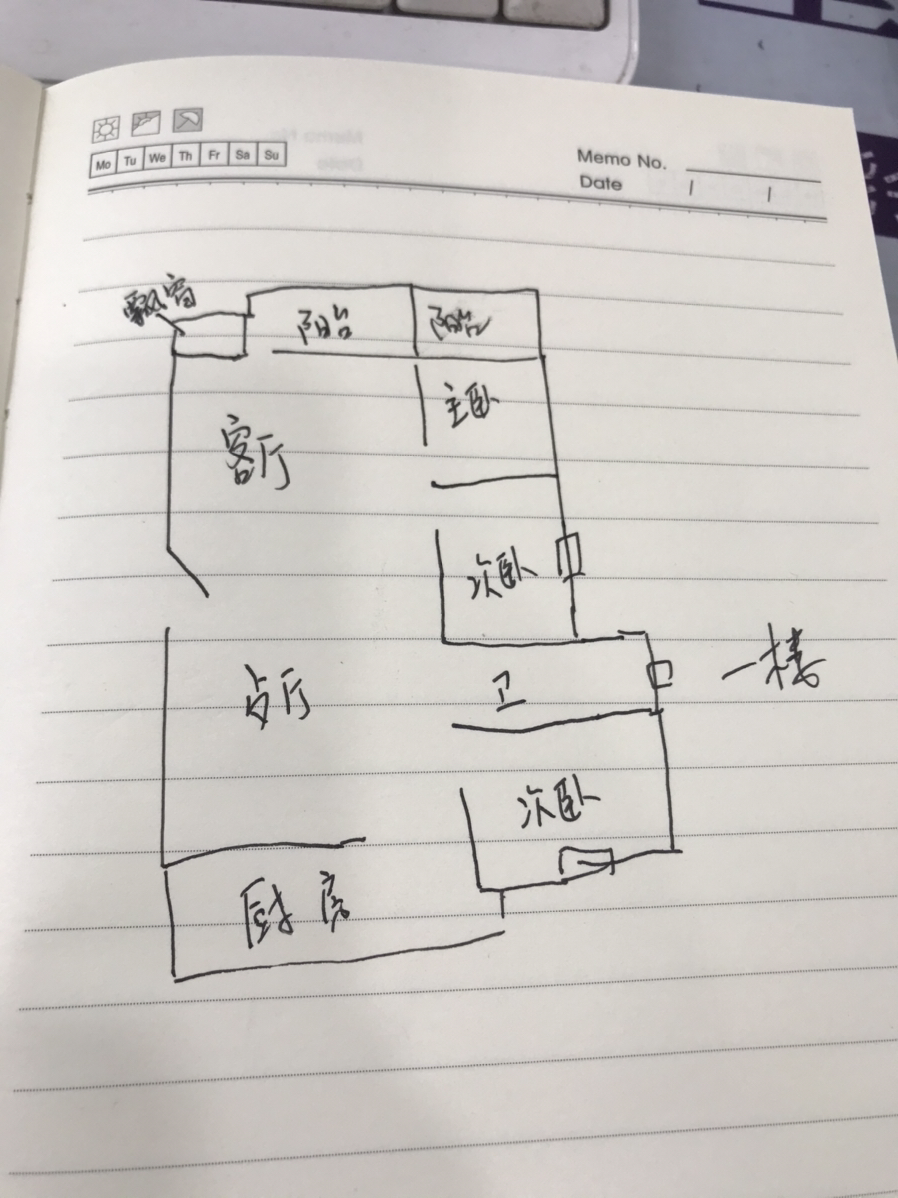 Mo Tu We Th Fr Sa Su
Memo No.
Date / /
飘窗
阳台
阳台
主卧
客厅
次卧
一楼
卫
占厅
次卧
厨房